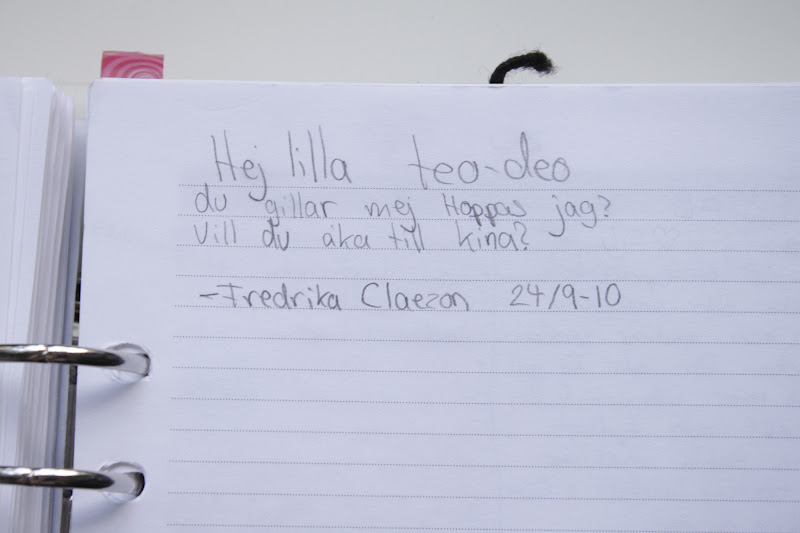 Hej lilla teo-deo
du gillar mej Hoppas jag?
Vill du åka till kina?
-Fredrika Claezon 24/9-10